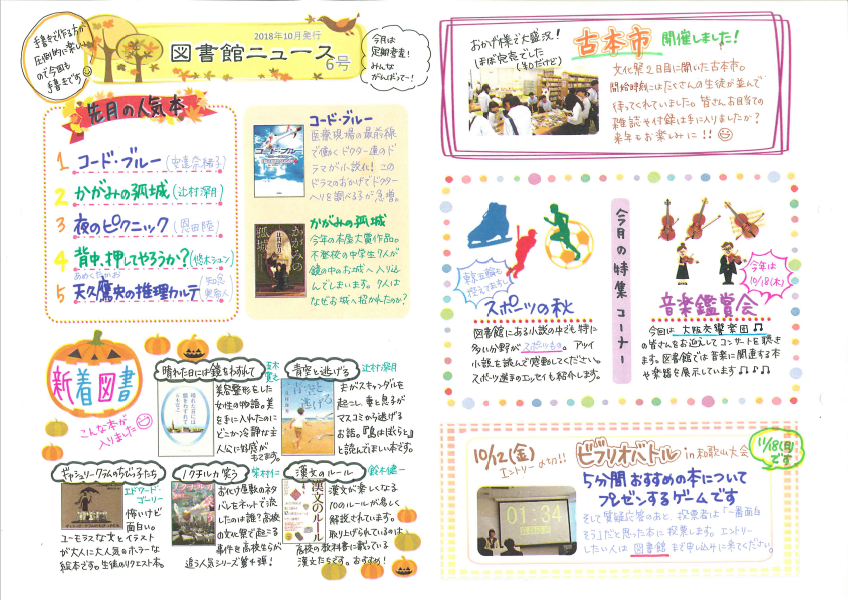 手書きで作る方が
圧倒的に楽しい
ので今回も
手書きです
2018年10月発行
図書館ニュース
6号
今月は
定期考査!
みんな
がんばって~!
先月の人気本
1 コード・ブルー(安達奈緒子)
2 かがみの孤城(辻村深月)
3 夜のピクニック(恩田陸)
4 背中、押してやろうか?(悠木シュン)
あめくたかお
5 天久鷹央の推理カルテ(知念実希人)
コード・ブルー
医療現場の最前線
で働くドクター達のド
ラマが小説化!この
ドラマのおかげでドクター
ヘリを調べる子が急増。
かがみの孤城
今年の本屋大賞作品。
不登校の中学生7人が
鏡の中のお城へ入り込
んでしまいます。7人は
なぜお城へ招かれたか?
新着図書
こんな本が
入りました
晴れた日には鏡をわすれて
五木寛之
美容整形をした
女性の物語。美
を手に入れたのに
どこか冷静な主
人公に好感が
もてます。
青空と逃げる
辻村深月
夫がスキャンダルを
起こし、妻と息子が
マスコミから逃げる
お話。『島はぼくらと』
と読んでほしい本です。
ギャシュリークラムのちびっ子たち
エドワード・
ゴーリー
怖いけど
面白い。
ユーモラスな文とイラスト
が大人に大人気のホラーな
絵本です。生徒のリクエスト本。
ノクチルカ笑う
柴村仁
お化け屋敷のネタ
バレをネットで流
したのは誰?高校
の文化祭で起こる
事件を高校生らが
追う人気シリーズ第千弾!
漢文のルール
鈴木健一
漢文が楽しくなる
10のルールが易しく
解説されています。
取り上げられているのは
高校の教科書に載っている
漢文たちです。おすすめ!
おかげ様で大盛況!
ほぼ完売でした
(¥0だけど)
古本市 開催しました!
文化祭2日目に開いた古本市。
開始時刻にはたくさんの生徒が並んで
待ってくれていました。皆さんお目当ての
雑誌や付録は手に入りましたか?
来年もお楽しみに!!
今月の特集コーナー
東京五輪も
控えてますし
スポーツの秋
図書館にある小説の中でも特に
多い分野がスポーツもの。アツイ
小説を読んで感動してください。
スポーツ選手のエッセイも紹介します。
今年は
10/18(木)
音楽鑑賞会
今回は 大阪交響楽団
の皆さんをお迎えしてコンサートを聴き
ます。図書館では音楽に関連する本
や楽器を展示しています
10/12(金)
エントリー〆切!!
ビブリオバトル in 和歌山大会
11/18(日)
です
5分間おすすめの本について
プレゼンするゲームです
01:34
そして質疑応答のあと、投票者は「一番面白
そう」だと思った本に投票します。エントリー
したい人は 図書館 まで申し込みに来てください。